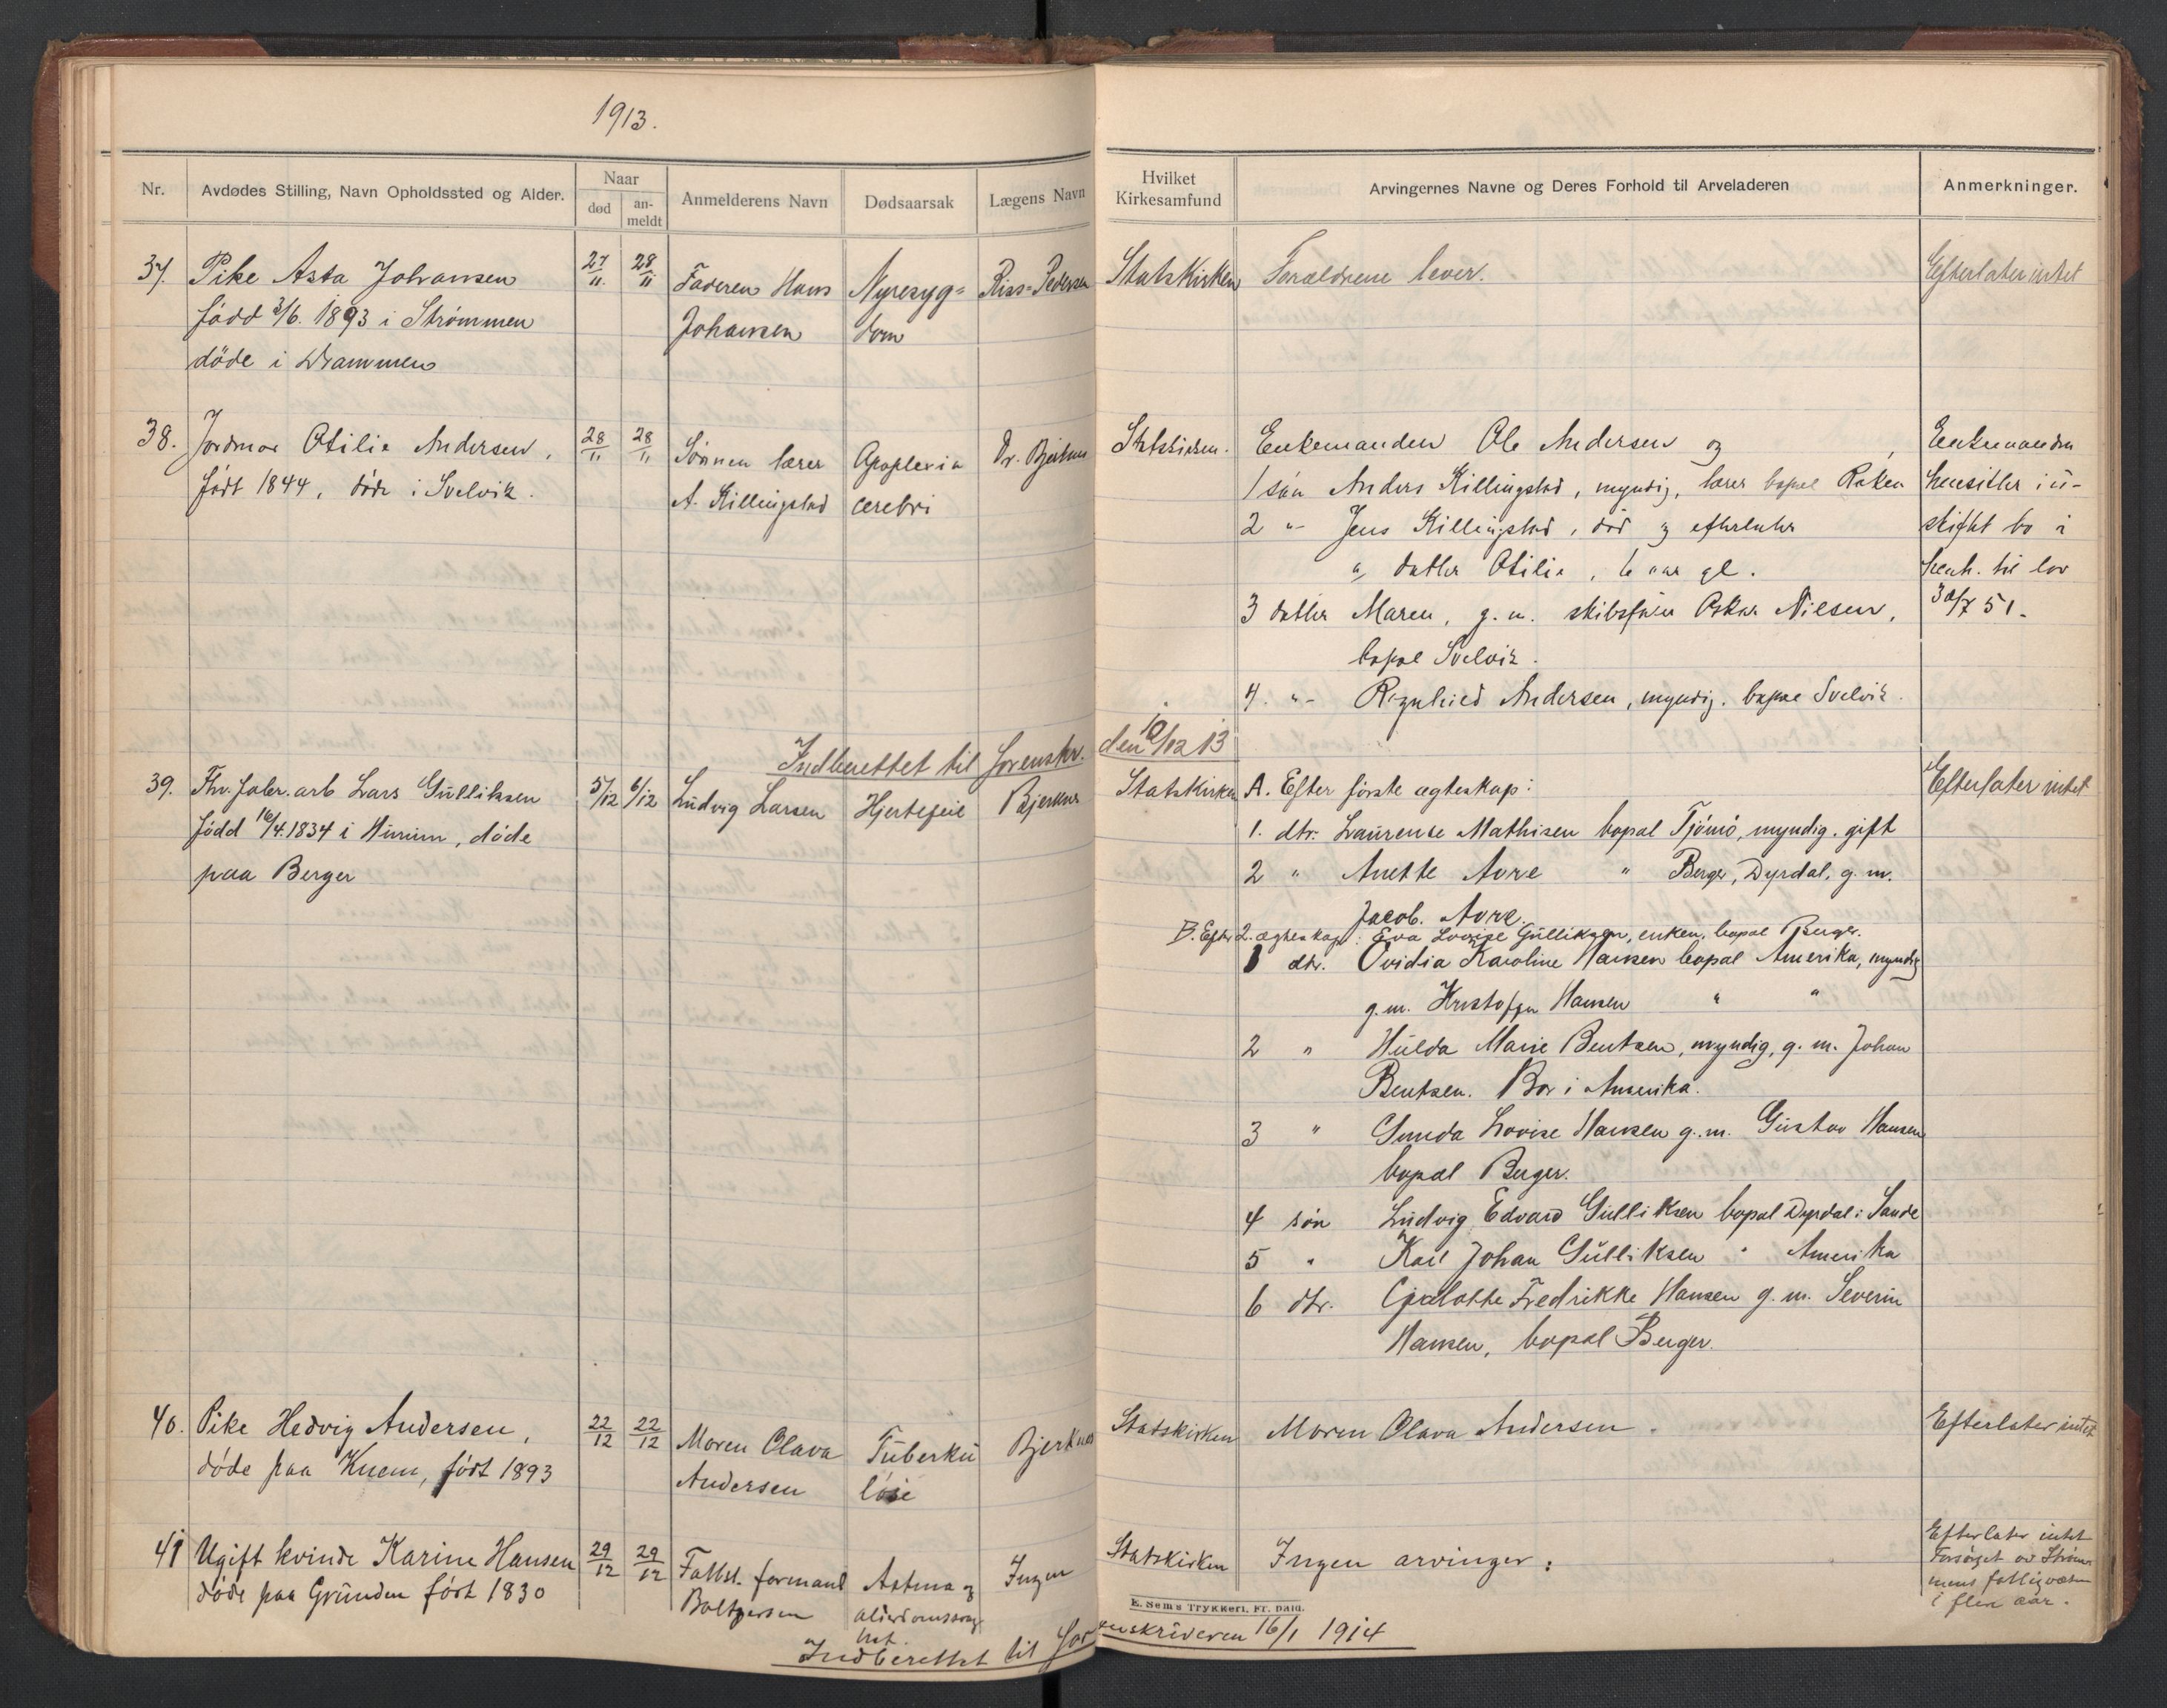 1913.
Nr.
Avdødes Stilling, Navn Opholdssted og Alder.
Naar
død
an-
meldt
Anmelderens Navn
Dødsaarsak
Lægens Navn
Hvilket
Kirkesamfund
Arvingernes Navne og Deres Forhold til Arveladeren
Anmerkninger.
37. Pike Asta Johansen 27/11 28/11 Faderen Hans Nyresyg= Riis=Pedersen Statskirken Forældrene lever. Efterlater intet
født 3/6. 1893 i Strømmen Johansen dom
døde i Drammen
38. Jordmor Otilie Andersen, 28/11 28/11 Sønnen lærer Apoplexia Dr. Statskirken. Enkemanden Ole Andersen og Enkemanden
født 1844, døde i Svelvik. A. Killingstad cerebri
1 søn Anders Killingstad, myndig, lærer bopæl Røken hensitter i u-
2 "- Jens Killingstad, død og efterlater skiftet bo i
a, datter Otilie, 6 aar gl. henh. til lov
3 datter Maren, g. m. skibsfører Oskar Nilsen, 30/7 51.
bopæl Svelvik.
4. "- Ragnhild Andersen, myndig. bopæl Svelvik.
Indberettet til Sorenskr. den 10/12 13
39. Fhv. fabr. arb Lars Gulliksen 5/12 6/12 Ludvig Larsen Hjertefeil Bjerknes Statskirken A. Efter første ægteskap: Efterlater intet
født 16/4. 1834 i Hurum, døde
paa Berger
1. dtr. Laurense Mathisen bopæl Tjømø, myndig. gift
2 " Anette Aore " Berger, Dyrdal, g. m.
Jacob. Aore.
B. Efter 2. ægteskap: Eva Lovise Gulliksen, enken, bopæl Berger.
1 dtr. Ovidia Karoline Hansen bopæl Amerika, myndig
g. m. Kristoffer Hansen " "
2 " Hulda Marie Bentsen, myndig, g. m. Johan
Bentsen. Bor i Amerika.
3 " Lovise Hansen g. m. Gustav Hansen
bopæl Berger.
4 søn Ludvig Edvard Gulliksen bopæl Dyrdal i Sande
5 " Karl Johan Gulliksen " Amerika
6 dtr. Fredrikke Hansen g. m. Severin
Hansen, bopæl Berger.
40. Pike Hedvig Andersen, 22/12 22/12 Moren Olava Tuberku Bjerknes Statskirken Moren Olava Andersen. Efterlater intet
døde paa Knem, født 1893 Andersen løse
41 Ugift kvinde Karine Hansen 29/12 29/12 Fattst. formand Astma og Ingen Statskirken Ingen arvinger: Efterlater intet
døde paa Grunden født 1830 Boltzersen alderdomssvag
het.
Forsørget av Strøm
mens fattigvæsen
i flere aar.
E. Sem's Trykkeri, Fr. hald.
Indberettet til Sorenskriveren 16/1 1914